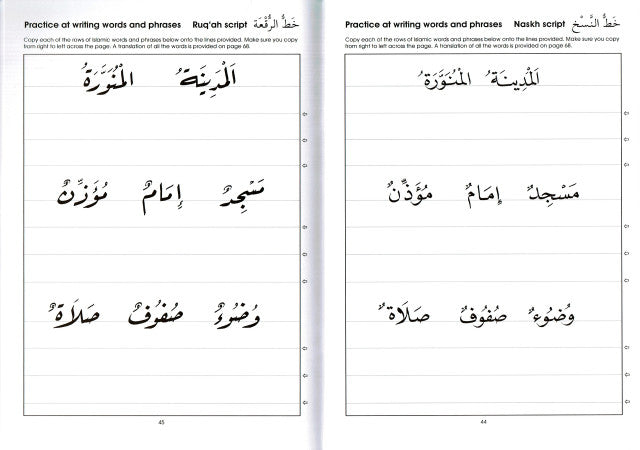 Practice at writing words and phrases Naskh script خَطُّ النَّسْخ
Copy each of the rows of Islamic words and phrases below onto the lines provided. Make sure you copy
from right to left across the page. A translation of all the words is provided on page 68.
اَلْمَدِينَةُ الْمُنَوَّرَةُ
مَسْجِدٌ إِمَامٌ مُؤَذِّنٌ
وُضُوءٌ صُفُوفٌ صَلَاةٌ
44
Practice at writing words and phrases Ruq'ah script خَطُّ الرُّقْعَة
Copy each of the rows of Islamic words and phrases below onto the lines provided. Make sure you copy
from right to left across the page. A translation of all the words is provided on page 68.
اَلْمَدِينَةُ الْمُنَوَّرَةُ
مَسْجِدٌ إِمَامٌ مُؤَذِّنٌ
وُضُوءٌ صُفُوفٌ صَلَاةٌ
45